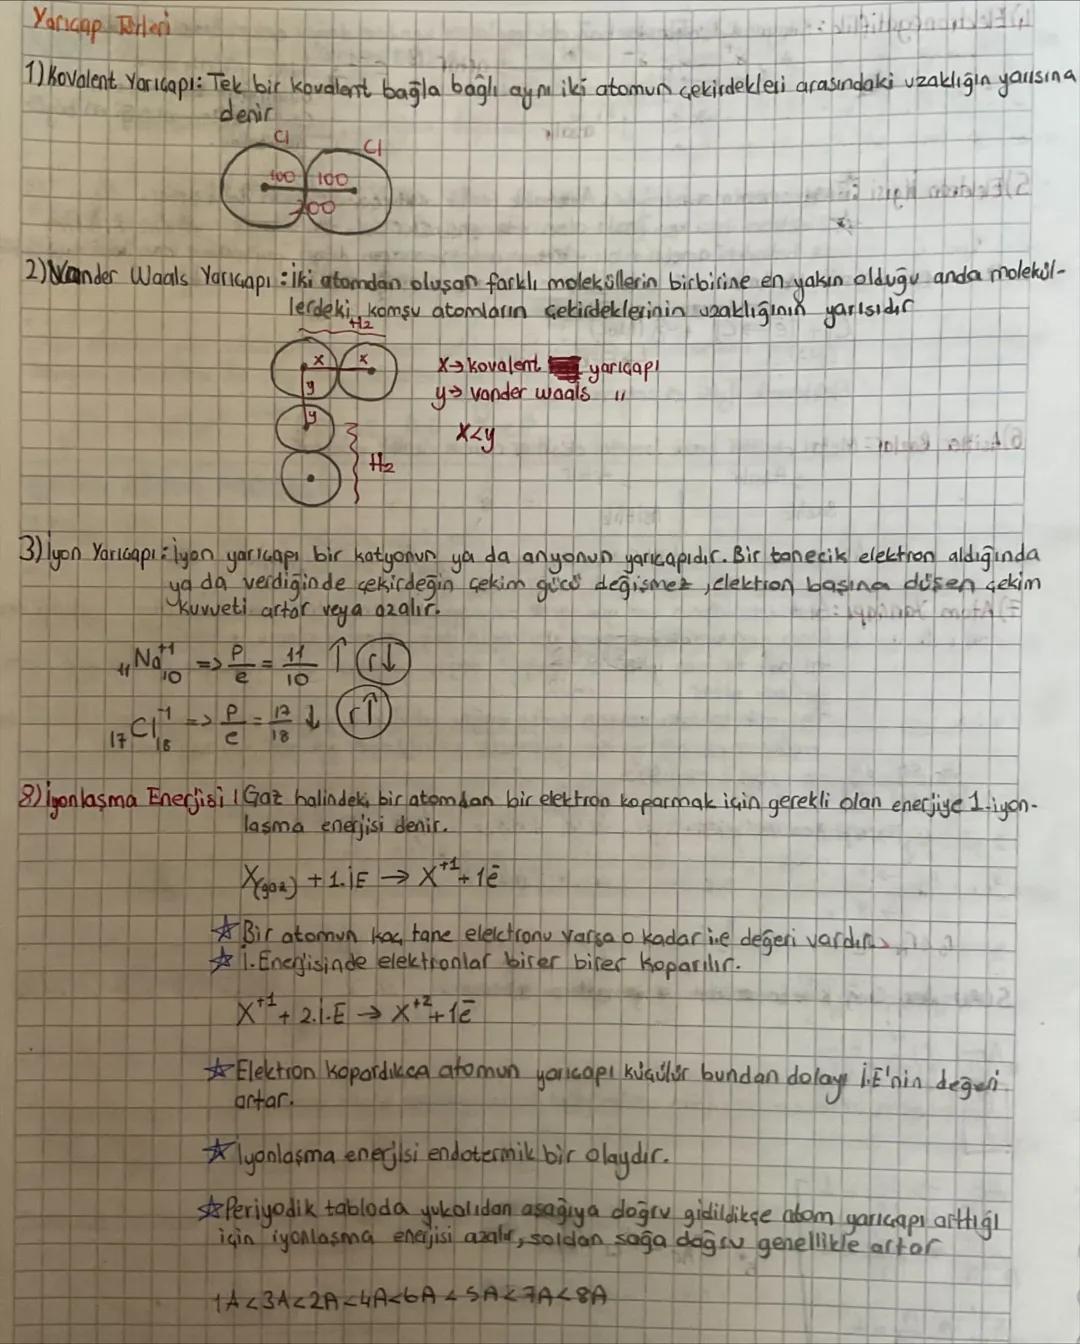 Yarıçap Türleri
1) Kovalent Yarıçapı: Tek bir kovalent bağla bağlı aynı iki atomun çekirdekleri arasındaki uzaklığın yarısına
denir
Cl
Cl
100 100
200
2) Vander Waals Yarıçapı: İki atomdan oluşan farklı moleküllerin birbirine en yakın olduğu anda molekül-
lerdeki komşu atomların çekirdeklerinin uzaklığının yarısıdır
H2
x x
y
y
H2
X→ kovalent yarıçapı
y→ vander waals "
X<y
3) İyon Yarıçapı: İyon yarıçapı bir katyonun ya da anyonun yarıçapıdır. Bir tanecik elektron aldığında
ya da verdiğinde çekirdeğin çekim gücü değişmez, elektron başına düşen çekim
kuvveti artar veya azalır.
₁₁Na⁺¹₁₀ => p/e = 11/10 ↑ r↓
₁₇Cl⁻¹₁₈ => p/e = 17/18 ↓ r↑
8) İyonlaşma Enerjisi: Gaz halindeki bir atomdan bir elektron koparmak için gerekli olan enerjiye 1.iyon-
laşma enerjisi denir.
X(gaz) + 1.İE → X⁺¹ + 1ē
☆ Bir atomun kaç tane elektronu varsa o kadar i.e değeri vardır.
☆ İ.Enerjisinde elektronlar birer birer koparılır.
X⁺¹ + 2.İ.E → X⁺² + 1ē
☆ Elektron kopardıkca atomun yarıcapı küçülür bundan dolayı İ.E'nin değeri
artar.
☆ İyonlaşma enerjisi endotermik bir olaydır.
☆ Periyodik tabloda yukarıdan aşağıya doğru gidildikçe atom yarıçapı arttığı
için iyonlaşma enerjisi azalır, soldan sağa doğru genellikle artar
1A<3A<2A<4A<6A<5A<7A<8A